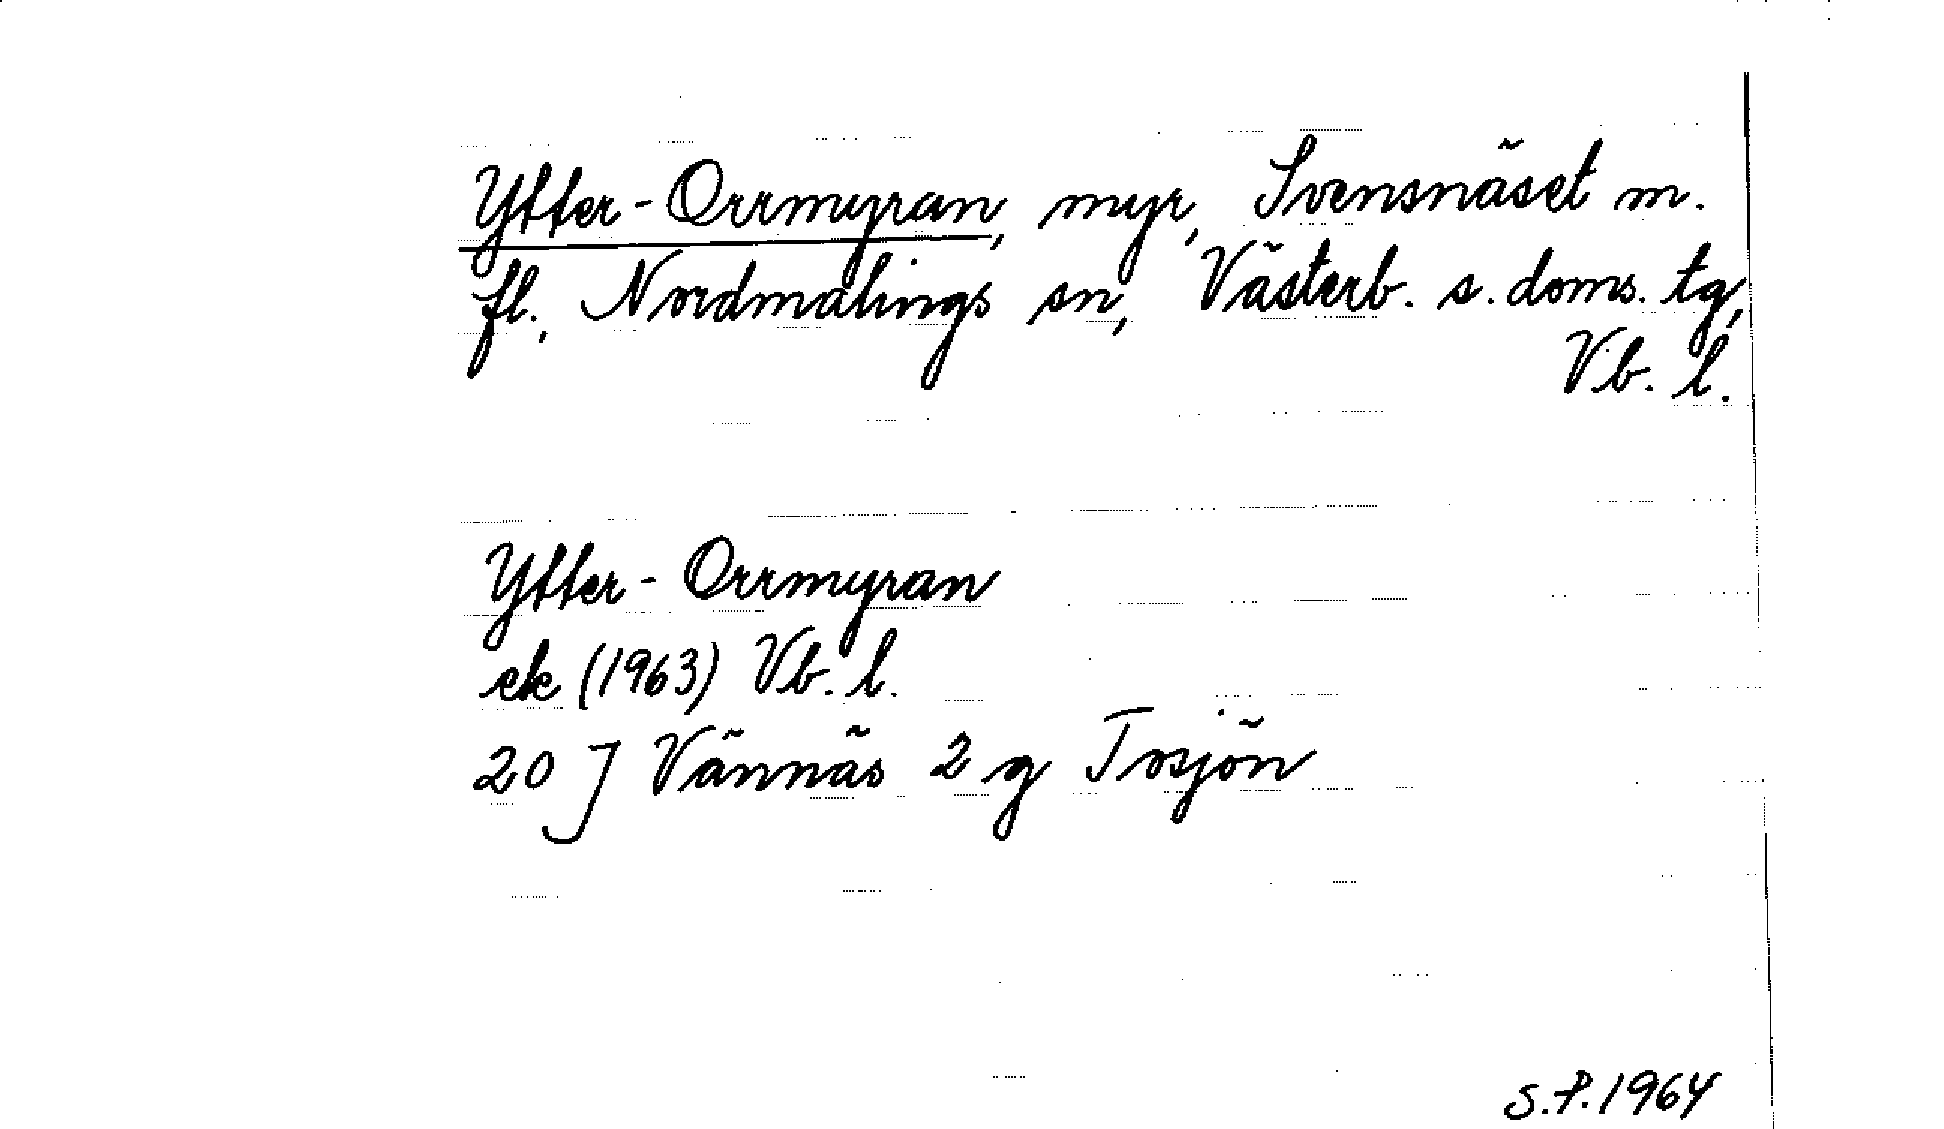 Ytter-Orrmyran, myr, Svensnäset m.
fl., Nordmalings sn, Västerb. s. doms. tg,
Vb. l.
Ytter-Orrmyran
ek (1963) Vb. l.
20 J Vännäs 2 g Tosjön
S.P. 1964